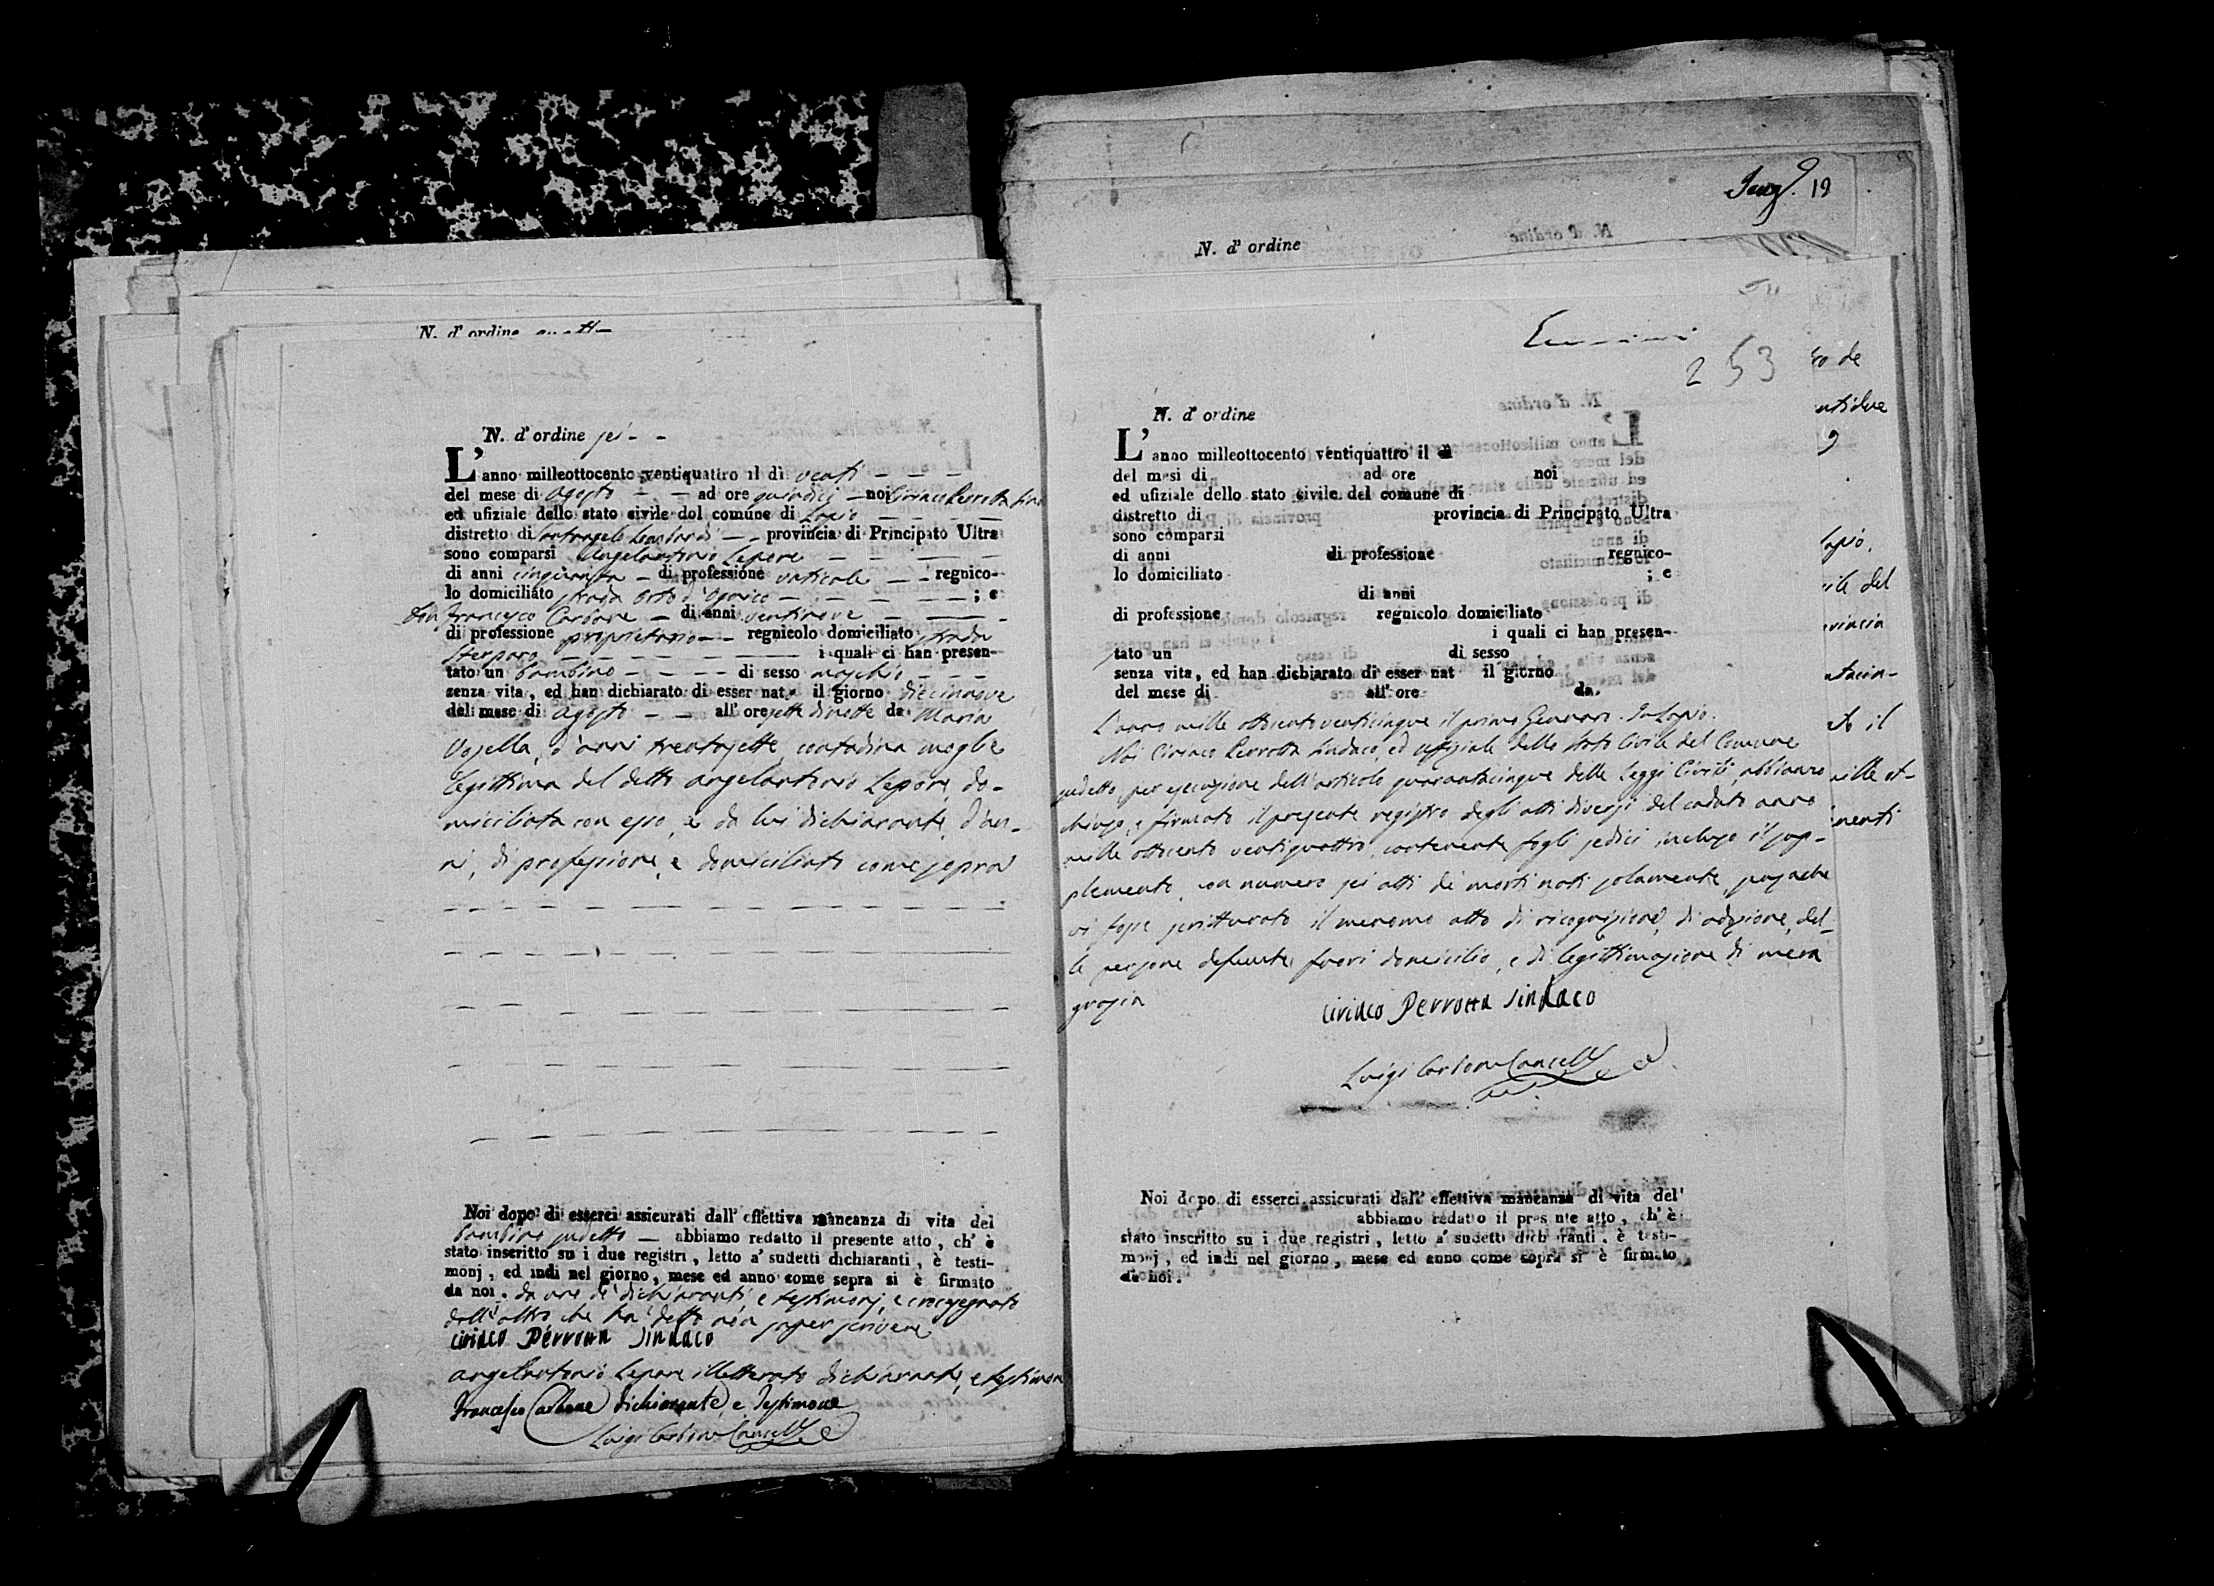 N. d' ordine
N. d' ordine sei
L' anno milleottocento ventiquattro il dì venti
del mese di agosto ad ore quindici noi Ciriaco Perrotta Sind
ed ufiziale dello stato civile del comune di Lapio
distretto di Santangelo Lombardi provincia di Principato Ultra
sono comparsi Angelantonio Lepore
di anni cinquanta di professione vaticale regnico-
lo domiciliato strada Orto d'; e
Don Francesco Carbone di anni ventinove
di professione proprietario regnicolo domiciliato strada
i quali ci han presen-
tato un bambino di sesso maschio
senza vita, ed han dichiarato di esser nato il giorno diecinove
del mese di agosto all' ore sette dinotte da Maria
d'anni trentasette contadina moglie
legittima del detto angelantonio Lepore, do-
miciliata con esso, e da lui dichiarante, d'an-
ni, di professione, e domiciliato come sopra
Noi dopo di esserci assicurati dall' effettiva mancanza di vita del
bambino sudetto abbiamo redatto il presente atto, ch' è
stato inscritto su i due registri, letto a' sudetti dichiaranti, è testi-
monj, ed indi nel giorno, mese ed anno come sopra si è firmato
da noi. da uno de' dichiaranti e testimonj, e crocesegnato
dall'altro che ha detto non saper scrivere
Ciriaco Perrotta Sindaco
angelantonio Lepore illetterato dichiarante, e testimone
Francesco Carbone dichiarante e testimone
Luigi Carbone Cancell
19
N. d' ordine
253
N. d' ordine
L' anno milleottocento ventiquattro il dì
del mesi di ad ore noi
ed ufiziale dello stato civile del comune di
distretto di provincia di Principato Ultra
sono comparsi
di anni di professione regnico-
lo domiciliato ; e
di anni
di professione regnicolo domiciliato
i quali ci han presen-
tato un di sesso
senza vita, ed han dichiarato di esser nat il giorno
del mese di all' ore da
L'anno mille ottocento venticinque il primo Gennaro. In Lapio.
Noi Ciriaco Perrotta Sindaco, ed uffiziale dello Stato Civile del Comune
sudetto, per esecuzione dell'articolo quarantacinque delle Leggi Civili, abbiamo
chiuso, e firmato il presente registro degli atti diversi del caduto anno
mille ottocento ventiquattro, contenente fogli sedici, incluso il sup-
plemento, con numero sei atti di morti nati solamente, senzache
vi fosse scritturato il menomo atto di ricognizione, di adozione, del-
le persone defunte fuori domicilio, e di legittimazione di mera
grazia
Ciriaco Perrotta Sindaco
Luigi Carbone Cancell
Noi dopo di esserci assicurati dall' effettiva mancanza di vita del'
abbiamo redatto il presente atto, ch' è
stato inscritto su i due registri, letto a' sudetti dichiaranti, è testi-
monj, ed indi nel giorno, mese ed anno come sopra si è firmato
da noi.